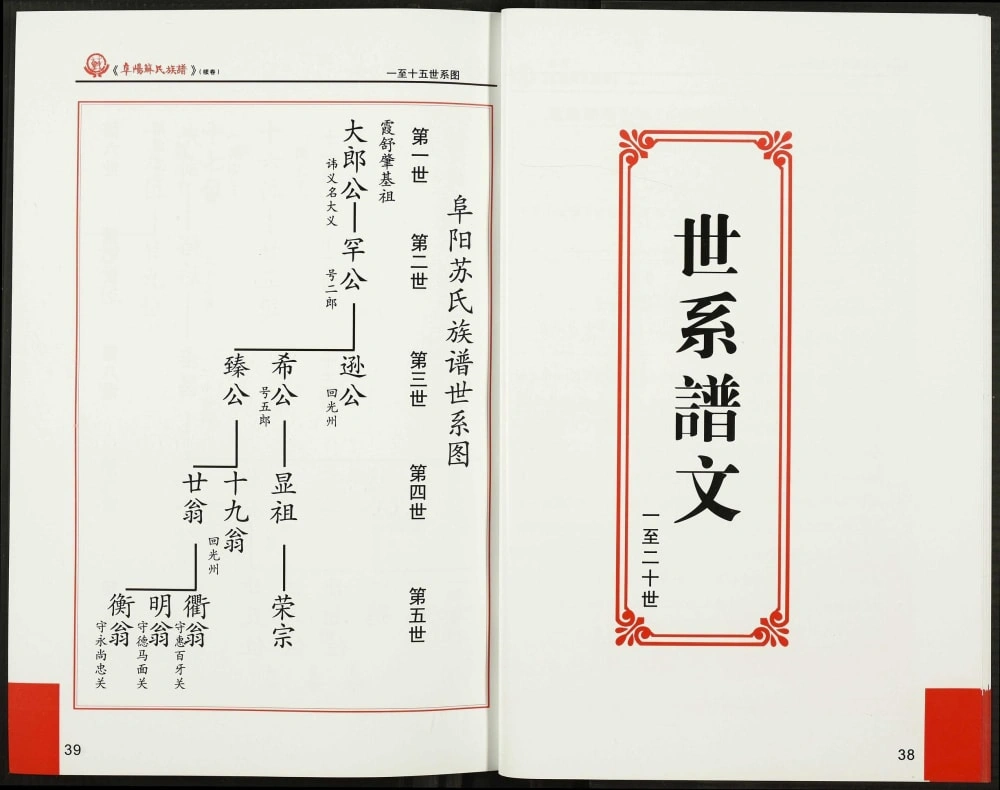 世系譜文
一至二十世
38
《阜陽蘇氏族譜》(续卷)
一至十五世系图
阜阳苏氏族谱世系图
第一世
霞舒肇基祖
大郎公
讳义名大义
第二世
罕公
号二郎
第三世
逊公
回光州
希公
号五郎
臻公
第四世
显祖
十九翁
回光州
廿翁
第五世
荣宗
衢翁
守惠百牙关
明翁
守德马面关
衡翁
守永尚忠关
39